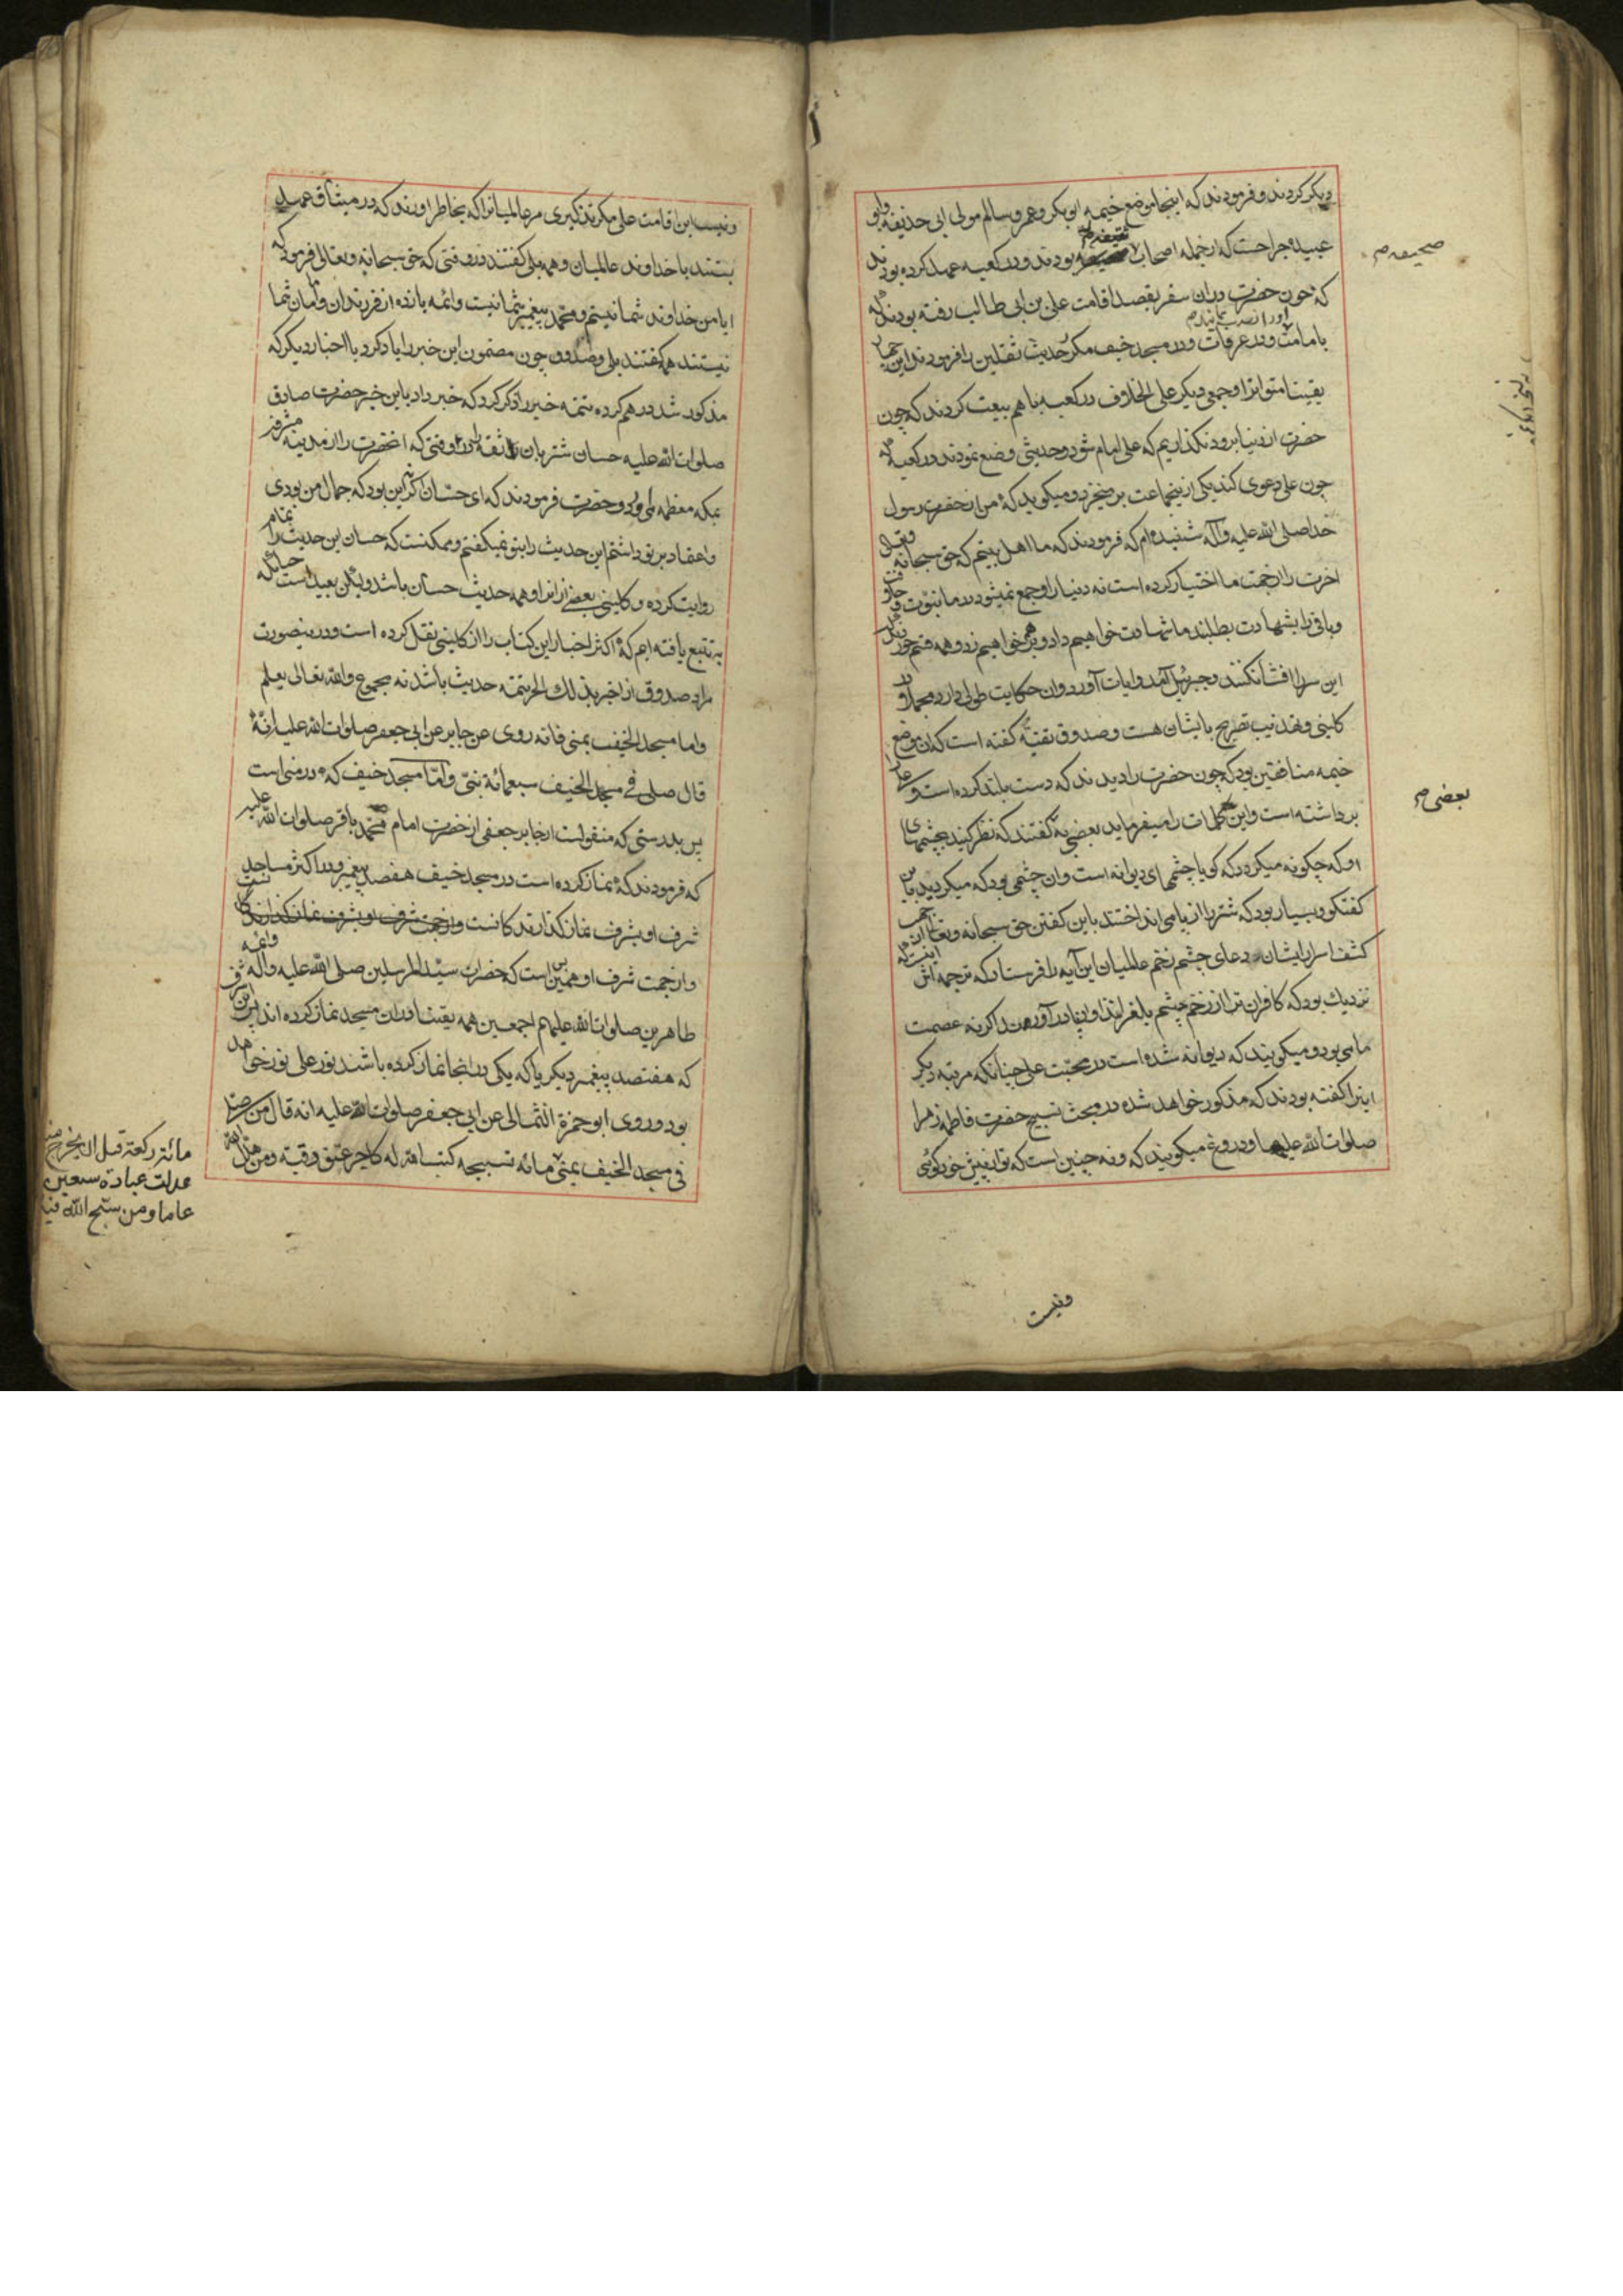 دیگر کردند و فرمودند که اینجا موضع خیمه ابو بکر و عمر و سالم مولی ابی حذیفه و ابو
عبیده جراحست که از جمله اصحاب بودند و در کعبه عهد کرده بودند
صحیفه م
که چون حضرت در آن سفر بقصد اقامت علی بن ابی طالب رفته بودند که
او را نصب نمایند م
بامامت و در عرفات و در مسجد خیف مکرر حدیث ثقلین را فرمودند این جماعت
یقینا متواترا و جمعی دیگر علی الخلاف در کعبه با هم بیعت کردند که چون
حضرت از دنیا برود نگذاریم که علی امام شود و حدیثی وضع نمودند در کعبه که
چون علی دعوی کند یکی از اینجماعت برمیخیزد و میگوید که من از حضرت رسول
خدا صلی الله علیه و آله شنیده ام که فرمودند که ما اهل بیتیم که حق سبحانه و تعالی
اخرت را از جهت ما اختیار کرده است نه دنیا را و جمع نمیشود در ما نبوت و خلافت
و باقی را بشهادت بطلبند ما شهادت خواهیم داد و خواهیم زد و همه قسم خوردند که
این سر را افشا نکنند و جبرئیل آمد و ایات آورد و ان حکایت طولی دارد و مجملا در
کلینی و تهذیب تصریح بایشان هست و صدوق تقیة گفته است که ان موضع
خیمه منافقین بود که چون حضرت را دیدند که دست بلند کرده است و علی را
برداشته است و این کلمات را میفرماید بعضی به گفتند که نظر کنید بچشمهای
بعضی م
او که چگونه میگردد که گویا چشمهای دیوانه است و ان چشمی بود که میگردید باین
گفتگو و بسیار بود که شتر را از پا می انداختند باین گفتن حق سبحانه و تعالی از جهت
کشف اسرار ایشان و دعای چشم زخم عالمیان این آیه را فرستاد که ترجمه اش اینست که
نزدیک بود که کافران ترا از زخم چشم بلغزانند و از پا درآورند اگر نه عصمت
ما می بود و میگویند که دیوانه شده است در محبت علی چنانکه مرتبه دیگر
اینرا گفته بودند که مذکور خواهد شد در مبحث تسبیح حضرت فاطمه زهرا
صلوات الله علیها و دروغ میگویند که و نه چنین است که تو از پیش خود گوئی
و نیست
و نیست این اقامت علی مگر تذکیری مر عالمیانرا که بخاطر اورند که در میثاق عهد
بستند با خداوند عالمیان و همه بلی گفتند در وقتی که حق سبحانه و تعالی فرمود که
ایا من خداوند شما نیستم و محمد پیغمبر شما نیست و ائمه یازده از فرزندان او امامان شما
نیستند همه گفتند بلی و صدوق چون مضمون این خبر را یاد کرد با اخبار دیگر که
مذکور شد در هم کرده تتمه خبر را ذکر کرد که خبر داد باین خبر حضرت صادق
صلوات الله علیه حسان شتربان ثقه را در وقتی که انحضرت را از مدینه مشرفه
بمکه معظمه می برد و حضرت فرمودند که ای حسان اگر نه این بود که جمال من بودی
و اعتقاد بر تو داشتم این حدیث را بتو نمیگفتم و ممکنست که حسان این حدیث را بتمام
روایت کرده و کلینی بعضی از انرا و همه حدیث حسان باشد و لیکن بعید است
به تتبع یافته ایم که اکثر اخبار این کتاب را از کلینی نقل کرده است و درینصورت
مراد صدوق از اخبر بذلک الخ تتمه حدیث باشد نه مجموع و الله تعالی یعلم
و اما مسجد الخیف بمنی فانه روی عن جابر عن ابی جعفر صلوات الله علیه انه
قال صلی فی مسجد الخیف سبعمائة نبی و اما مسجد خیف که در منی است
پس بدرستی که منقولست از جابر جعفی از حضرت امام محمد باقر صلوات الله علیه
که فرمودند که نماز کرده است در مسجد خیف هفصد پیغمبر و در اکثر مساجد
شرف او بشرف نماز گذارنده کانست
و از جهت شرف او همین بس است که حضرات سید المرسلین صلی الله علیه و آله و ائمه
طاهرین صلوات الله علیهم اجمعین همه یقینا در ان مسجد نماز کرده اند
که هفتصد پیغمبر دیگر یا که یکی در انجا نماز کرده باشند نور علی نور خواهد
بود و روی ابو حمزة الثمالی عن ابی جعفر صلوات الله علیه انه قال من صلی
فی مسجد الخیف بمنی مائة تسبیحه کتب الله له کاجر عتق رقبة و من هلل الله
مائة رکعة قبل ان یخرج منه
عدلت عبادة سبعین
عاما و من سبح الله فیه